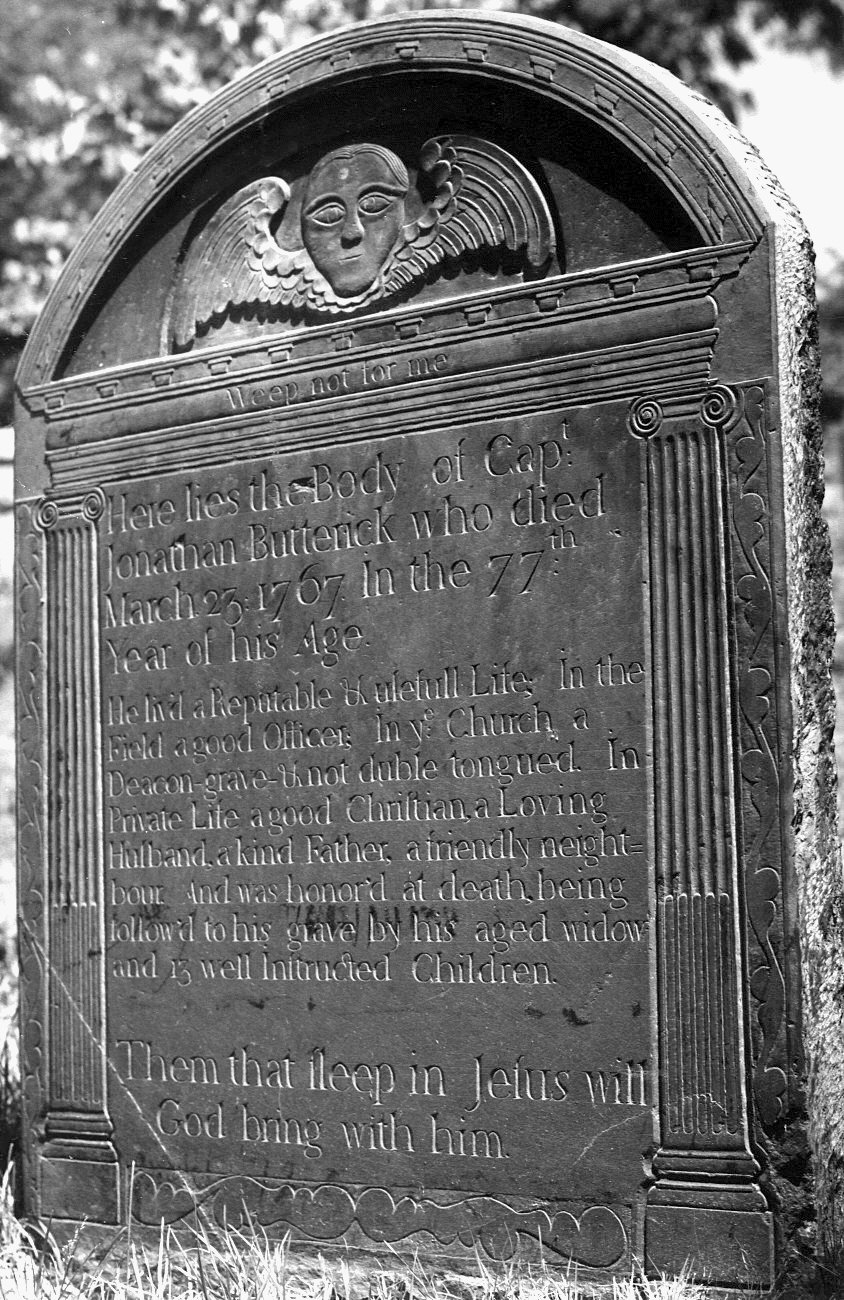 Weep not for me
Here lies the Body of Capᵗ:
Jonathan Butterick who died
March 23: 1767. In the 77ᵗʰ:
Year of his Age.
He liv'd a Reputable & uſefull Life; In the
Field a good Officer; In yᵉ Church, a
Deacon-grave-& not duble tongued. In
Private Life a good Chriſtian, a Loving
Huſband, a kind Father, a friendly neight=
bour. And was honor'd at death, being
follow'd to his grave by his aged widow
and 13 well Inſtructed Children.
Them that ſleep in Jeſus will
God bring with him.